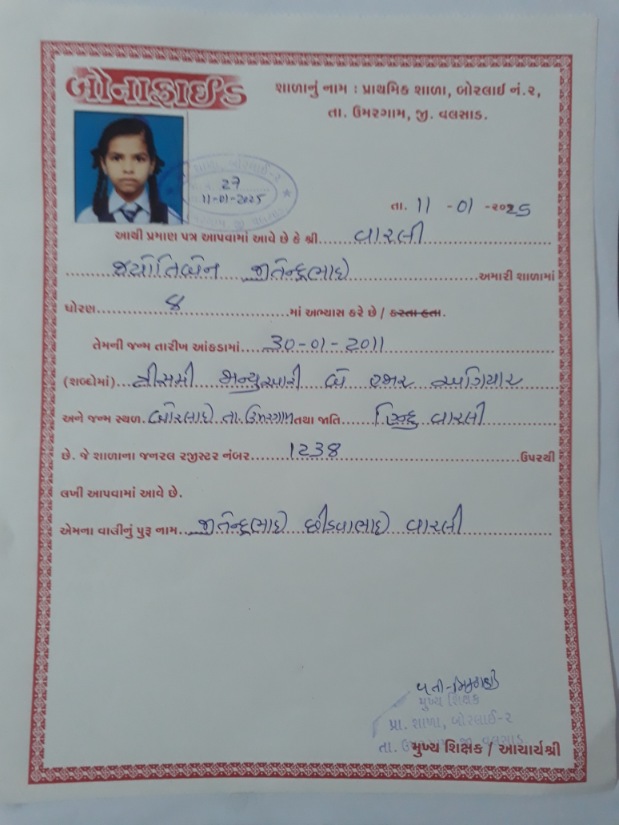 બોનાફાઈડ
શાળાનું નામ : પ્રાથમિક શાળા, બોરલાઈ નં.૨,
તા. ઉમરગામ, જી. વલસાડ.
27
11-01-2025
તા. 11 -01 -૨૦25
આથી પ્રમાણ પત્ર આપવામાં આવે છે કે શ્રી વારલી
જ્યોતિબેન જીતેન્દ્રભાઈ અમારી શાળામાં
ધોરણ 8 માં અભ્યાસ કરે છે / કરતા હતા.
તેમની જન્મ તારીખ આંકડામાં 30-01-2011
(શબ્દોમાં) ત્રીસમી જાન્યુઆરી બે હજાર અગિયાર
અને જન્મ સ્થળ બોરલાઈ તા. ઉમરગામ તથા જાતિ હિન્દુ વારલી
છે. જે શાળાના જનરલ રજીસ્ટર નંબર 1238 ઉપરથી
લખી આપવામાં આવે છે.
એમના વાલીનું પુરૂ નામ જીતેન્દ્રભાઈ છીડવાભાઈ વારલી
મુખ્ય શિક્ષક
પ્રા. શાળા, બોરલાઈ-૨
મુખ્ય શિક્ષક / આચાર્યશ્રી